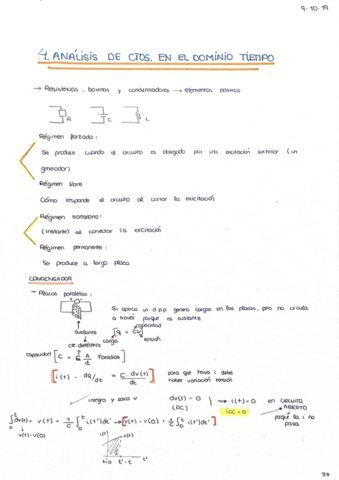 9-10-19
4. ANÁLISIS DE CTOS. EN EL DOMINIO TIEMPO
→ Resistencias, bovinas y condensadores → elementos pasivos
R C L
Régimen forzado:
Se produce cuando el circuito es obligado por una excitación exterior (un
generador)
Régimen libre:
Cómo responde el circuito al cortar la excitación
Régimen transitorio:
(Instante) al conectar la excitación
Régimen permanente:
Se produce a largo plazo
CONDENSADOR
→ Placas paralelas:
Si aplica un d.p.p genera cargas en las placas, pero no circula
a través porque es aislante
aislante
cte. dieléctrica
capacidad
[q = CV]
carga
tensión
capacidad [C = ε A/d Faradios]
[i(t) = dq/dt = C · dv(t)/dt]
para que haya i debe
haber variación tensión
integro y saco v
dv(t) = 0 (DC) } → i(t)=0
iDC = 0
en CIRCUITO
ABIERTO
porque la i no
pasa
∫₀ᵗ dv(t) = v(t) = 1/C ∫₀ᵗ i(t')dt' → [v(t) - v(0) = 1/C ∫₀ᵗ i(t')dt']
v(t)-v(0)
i(t')
t=0 t'=t t'